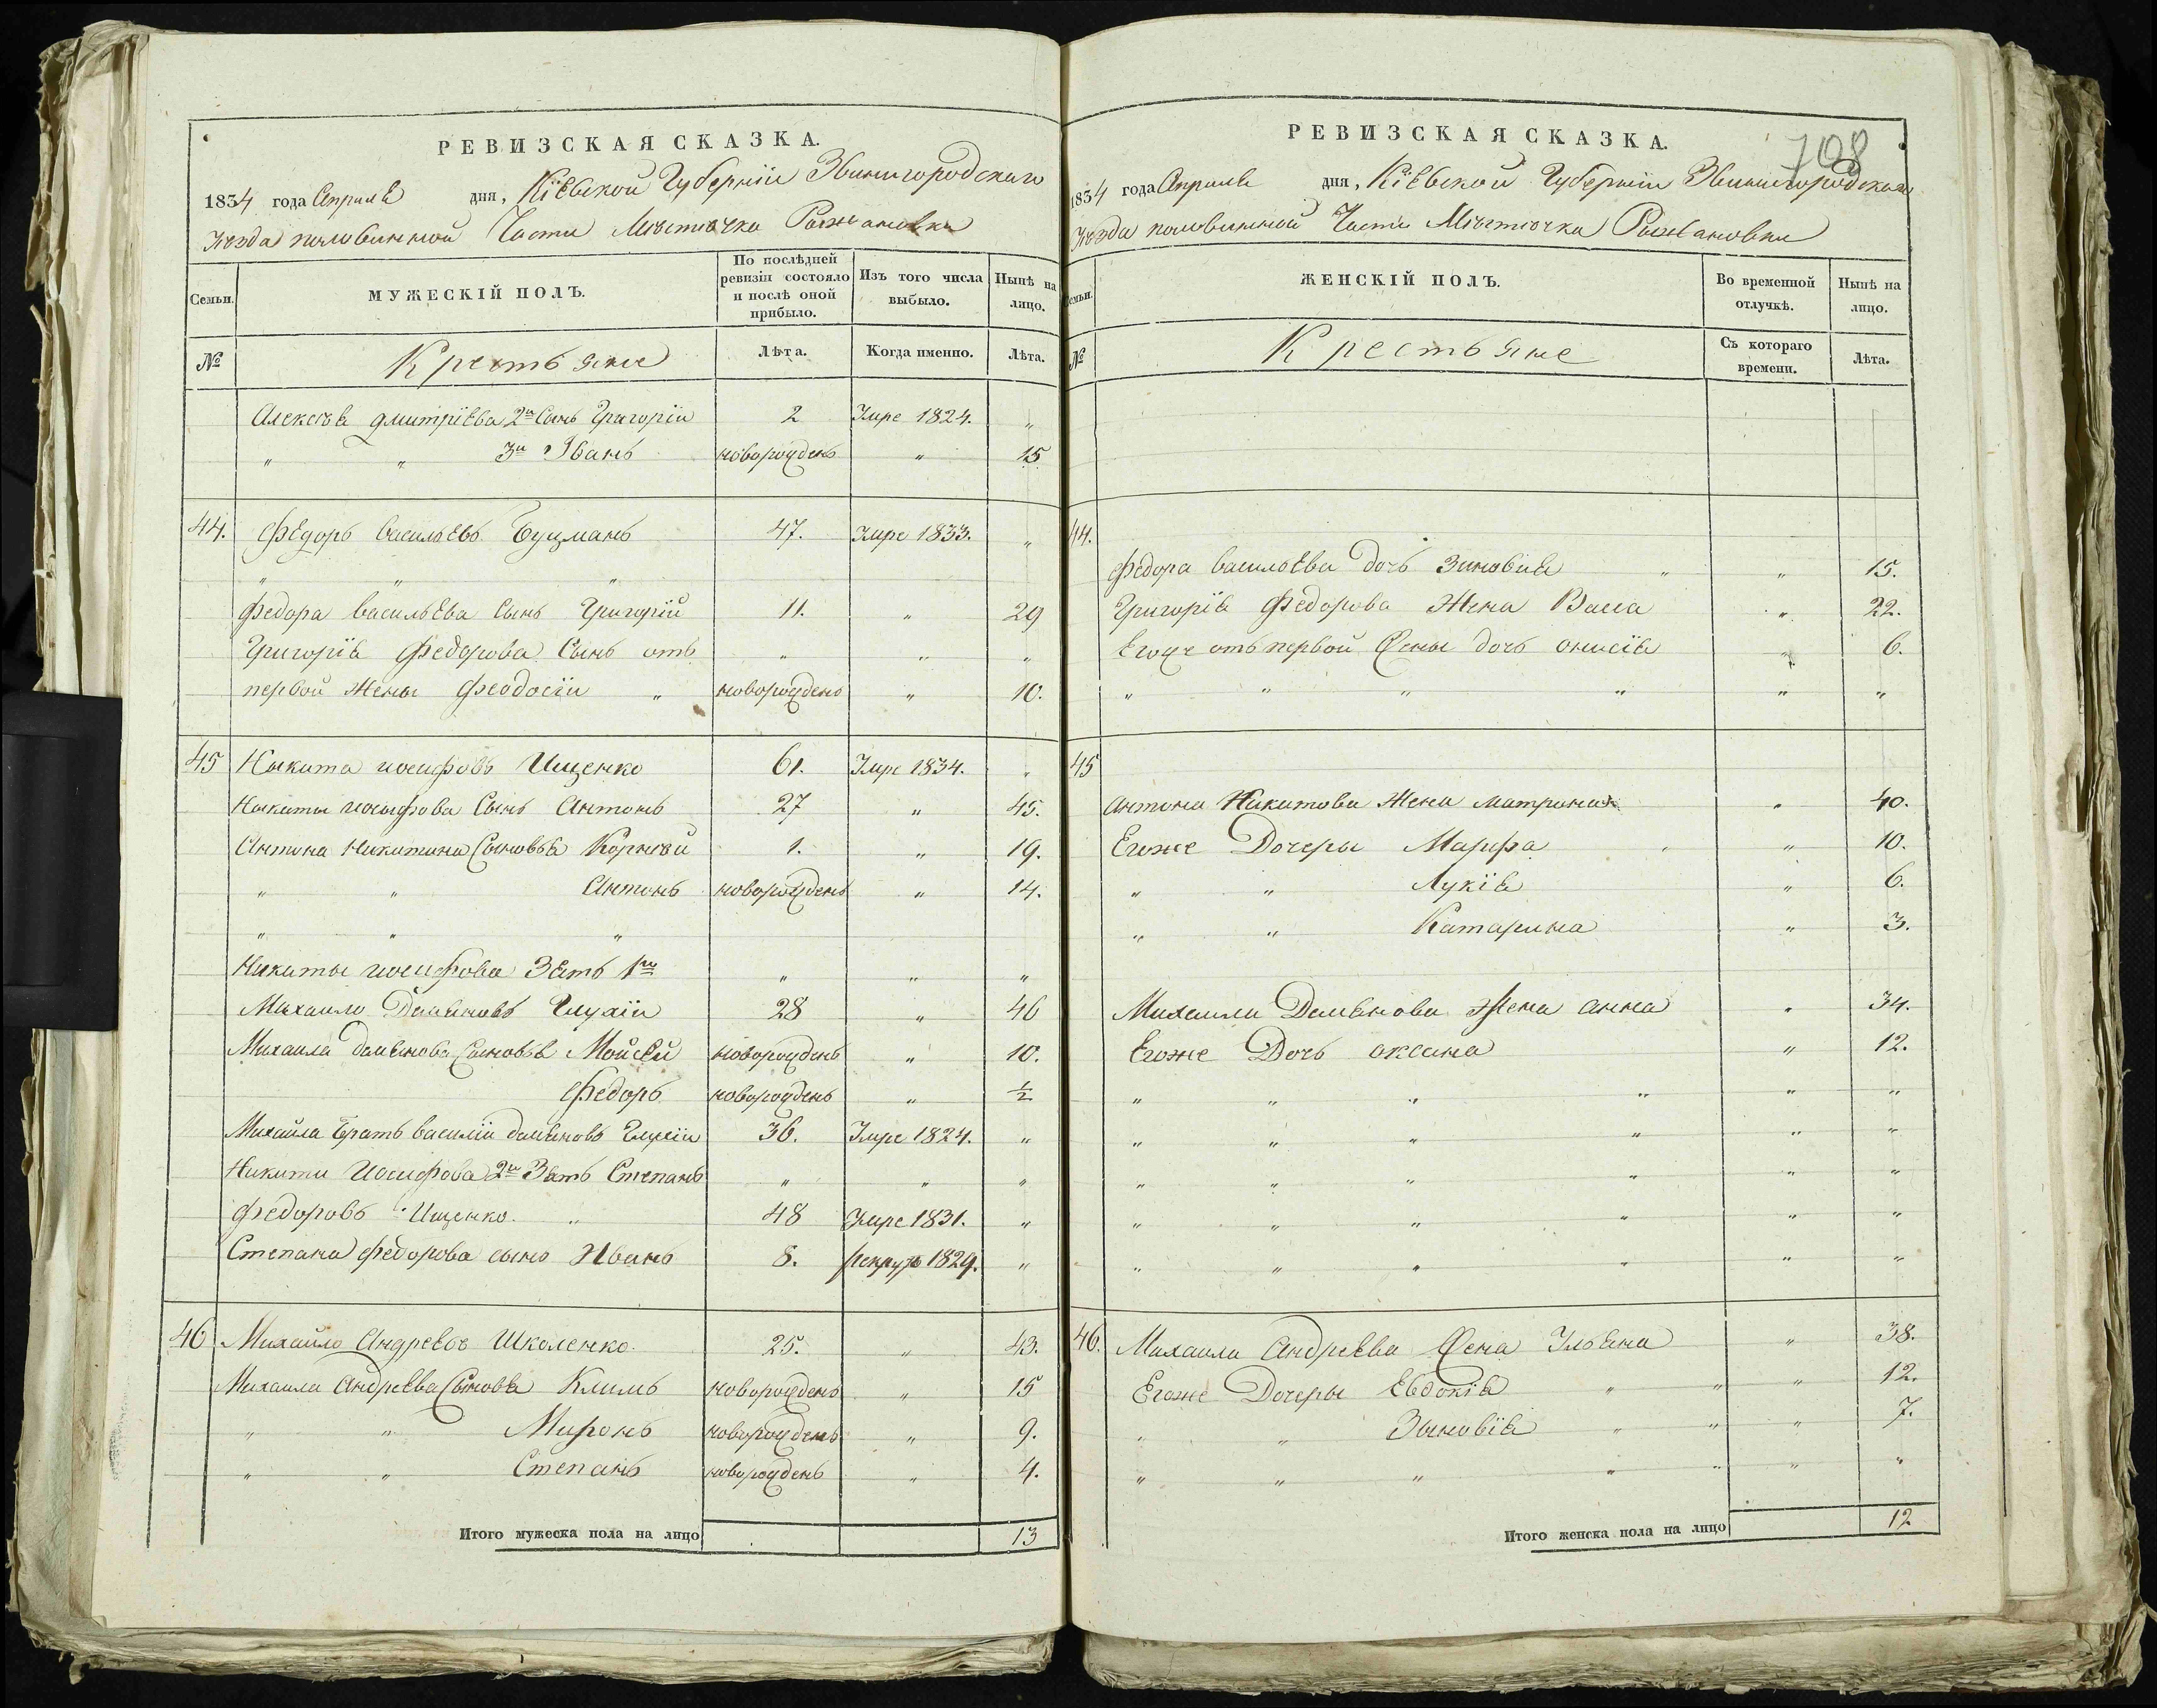 РЕВИЗСКАЯ СКАЗКА.
1834 года Априля дня, Кіевской Губерніи Звинигородскаго
уезда половинной Части Місточка Рыжановки
Семьи.
МУЖЕСКІЙ ПОЛЪ.
По послѣдней ревизіи состояло и послѣ оной прибыло.
Изъ того числа выбыло.
Нынѣ на лицо.
№
Крестьяне
Лѣта.
Когда именно.
Лѣта.
Алексѣя дмитріева 2й Сынъ Григорій 2 Умре 1824. "
" " 3й Іванъ новорожденъ " 15
44. Федоръ васильевъ Буцманъ 47. Умре 1833. "
" " "
Федора васильева Сынъ Григорій 11. " 29
Григорія Федорова Сынъ отъ " " "
первой Жены Феодосій " новорожденъ " 10.
45 Никита иосифовъ Ищенко 61. Умре 1834. "
Никиты иосифова Сынъ Антонъ 27 " 45.
Антона Никитина Сыновья Корнѣй 1. " 19.
" " Антонъ новорожденъ " 14.
" " "
Никиты иосифова Зять 1й " " "
Михайло Демяновъ Глухій 28 " 46
Михаила демянова Сыновья Мойсей новорожденъ " 10.
Федоръ новорожденъ " ½
Михайла Братъ василій демяновъ Глухій 36. Умре 1824. "
Никиты Иосифова 2й Зять Степанъ " " "
Федоровъ Ищенко. " 48 Умре 1831. "
Степана федорова сынъ Иванъ 8. рекрутъ 1829. "
46 Михайло Андреевъ Школенко. 25. " 43.
Михаила Андреева Сыновья Климъ новорожденъ " 15
" " Миронъ новорожденъ " 9.
" " Степанъ новорожденъ " 4.
Итого мужеска пола на лицо 13
708
РЕВИЗСКАЯ СКАЗКА.
1834 года Априля дня, Кіевской Губерніи Звинигородскаго
уезда половинной Части Місточка Рыжановки
Семьи.
ЖЕНСКІЙ ПОЛЪ.
Во временной отлучкѣ.
Нынѣ на лицо.
№
Крестьяне
Съ котораго времени.
Лѣта.
44.
Федора васильева дочь Зиновия " " 15.
Григорія Федорова Жена Васса " 22.
Егоже отъ первой Жены дочь онисія " 6.
" " " " " "
45
Антона Никитова Жена матрина " 40.
Егоже Дочеры Марфа " " 10.
" " Лукія " 6.
" " Катарина " 3.
Михаила Демянова Жена анна " 34.
Егоже Дочь оксана " 12.
" " " " " "
" " " " " "
" " " " " "
" " " " " "
" " " " " "
46. Михаила Андреева Жена Ульяна " 38.
Егоже Дочеры Евдокія " " " 12.
" " Зыновія " " " 7.
" " " " " " "
Итого женска пола на лицо 12